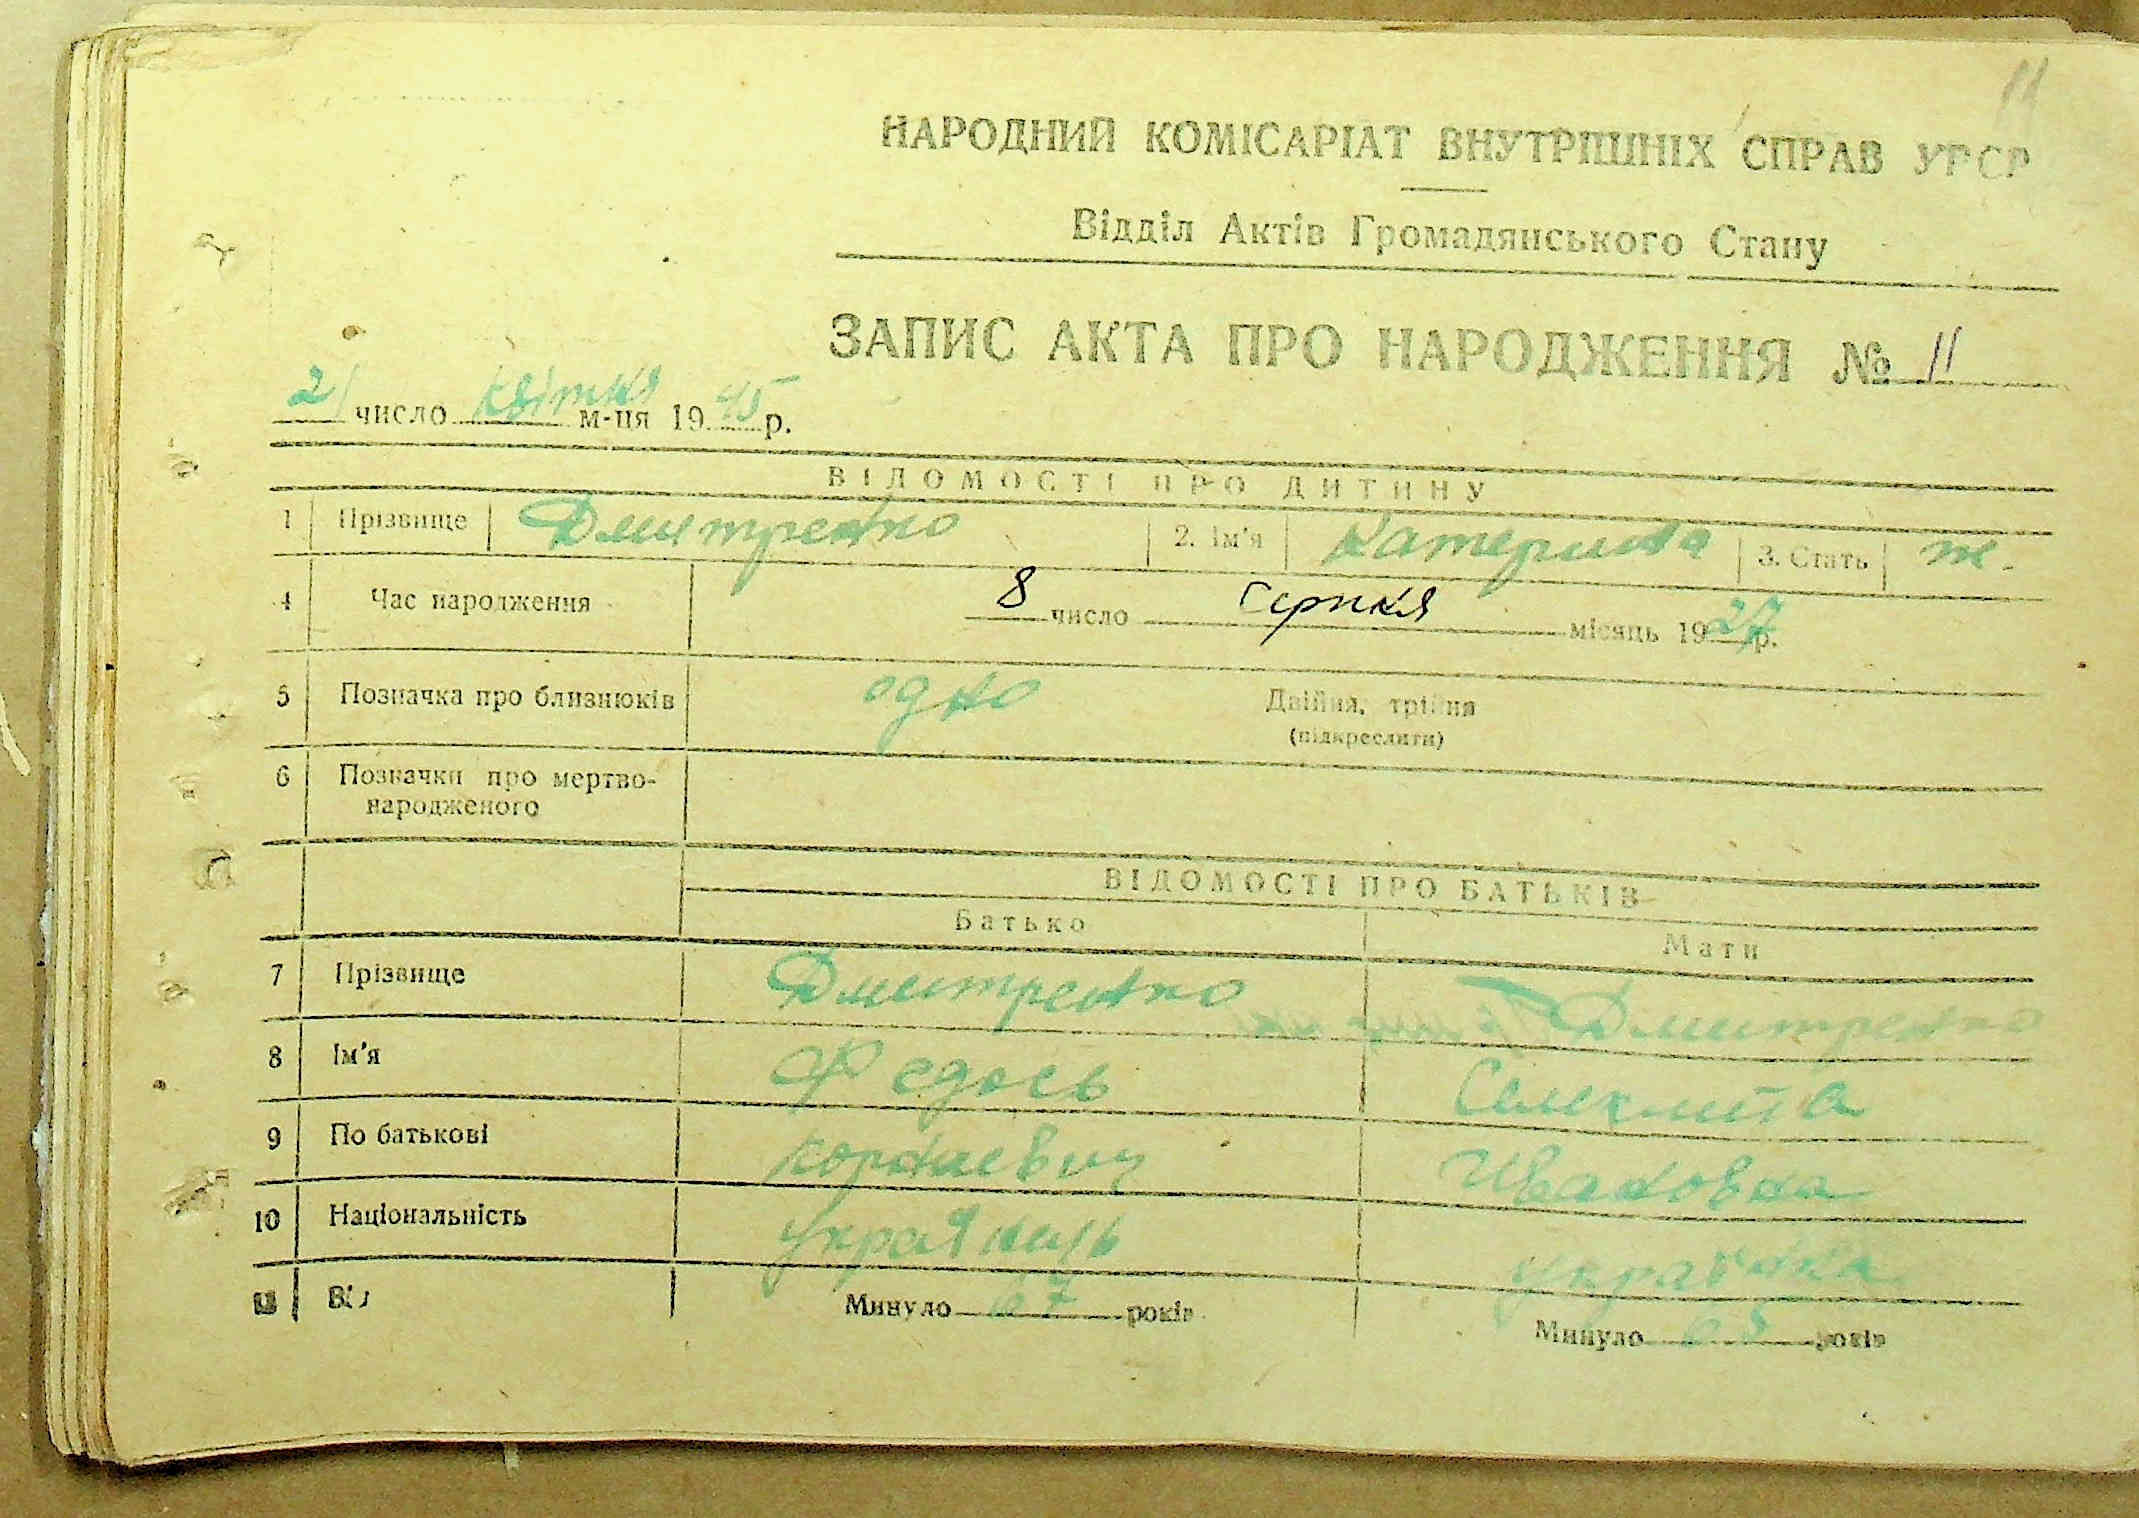 11
НАРОДНИЙ КОМІСАРІАТ ВНУТРІШНІХ СПРАВ УРСР
Відділ Актів Громадянського Стану
ЗАПИС АКТА ПРО НАРОДЖЕННЯ № 11
21 число квітня м-ця 1945 р.
ВІДОМОСТІ ПРО ДИТИНУ
1 Прізвище Дмитренко 2. Ім'я Катерина 3. Стать ж.
4 Час народження 8 число серпня місяць 1927 р.
5 Позначка про близнюків одно Двійня, трійня
(підкреслити)
6 Позначки про мертво-
народженого
ВІДОМОСТІ ПРО БАТЬКІВ
Батько Мати
7 Прізвище Дмитренко Дмитренко
8 Ім'я Федось
9 По батькові Корнієвич Ивановна
10 Національність українець українка
11 Вік Минуло 67 років Минуло 65 років